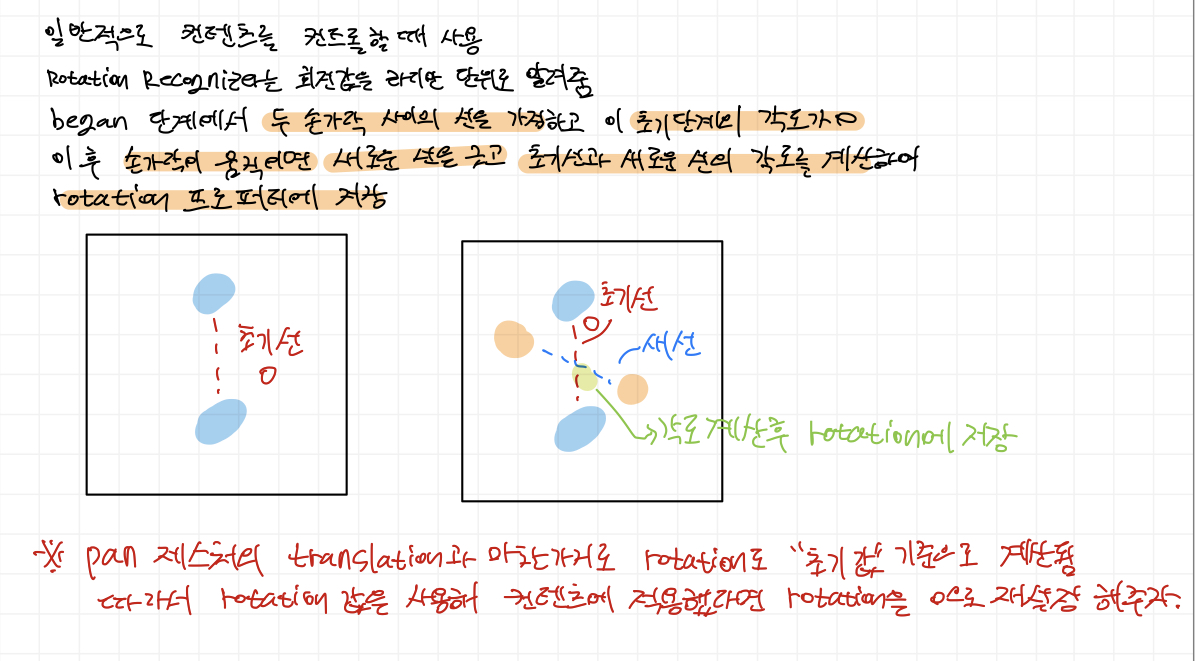 일반적으로 컨텐츠를 컨트롤할 때 사용
Rotation Recognizer는 회전값을 라디안 단위로 알려줌
began 단계에서 두 손가락 사이의 선을 가정하고 이 초기단계의 각도가 0
이후 손가락이 움직이면 새로운 선을 긋고 초기선과 새로운 선의 각도를 계산하여
rotation 프로퍼티에 저장
초기선
0
초기선
0
새선
각도 계산후 rotation에 저장
※ pan 제스처의 translation과 마찬가지로 rotation도 "초기 값" 기준으로 계산됨
따라서 rotation 값을 사용해 컨텐츠에 적용했다면 rotation을 0으로 재설정 해주자.